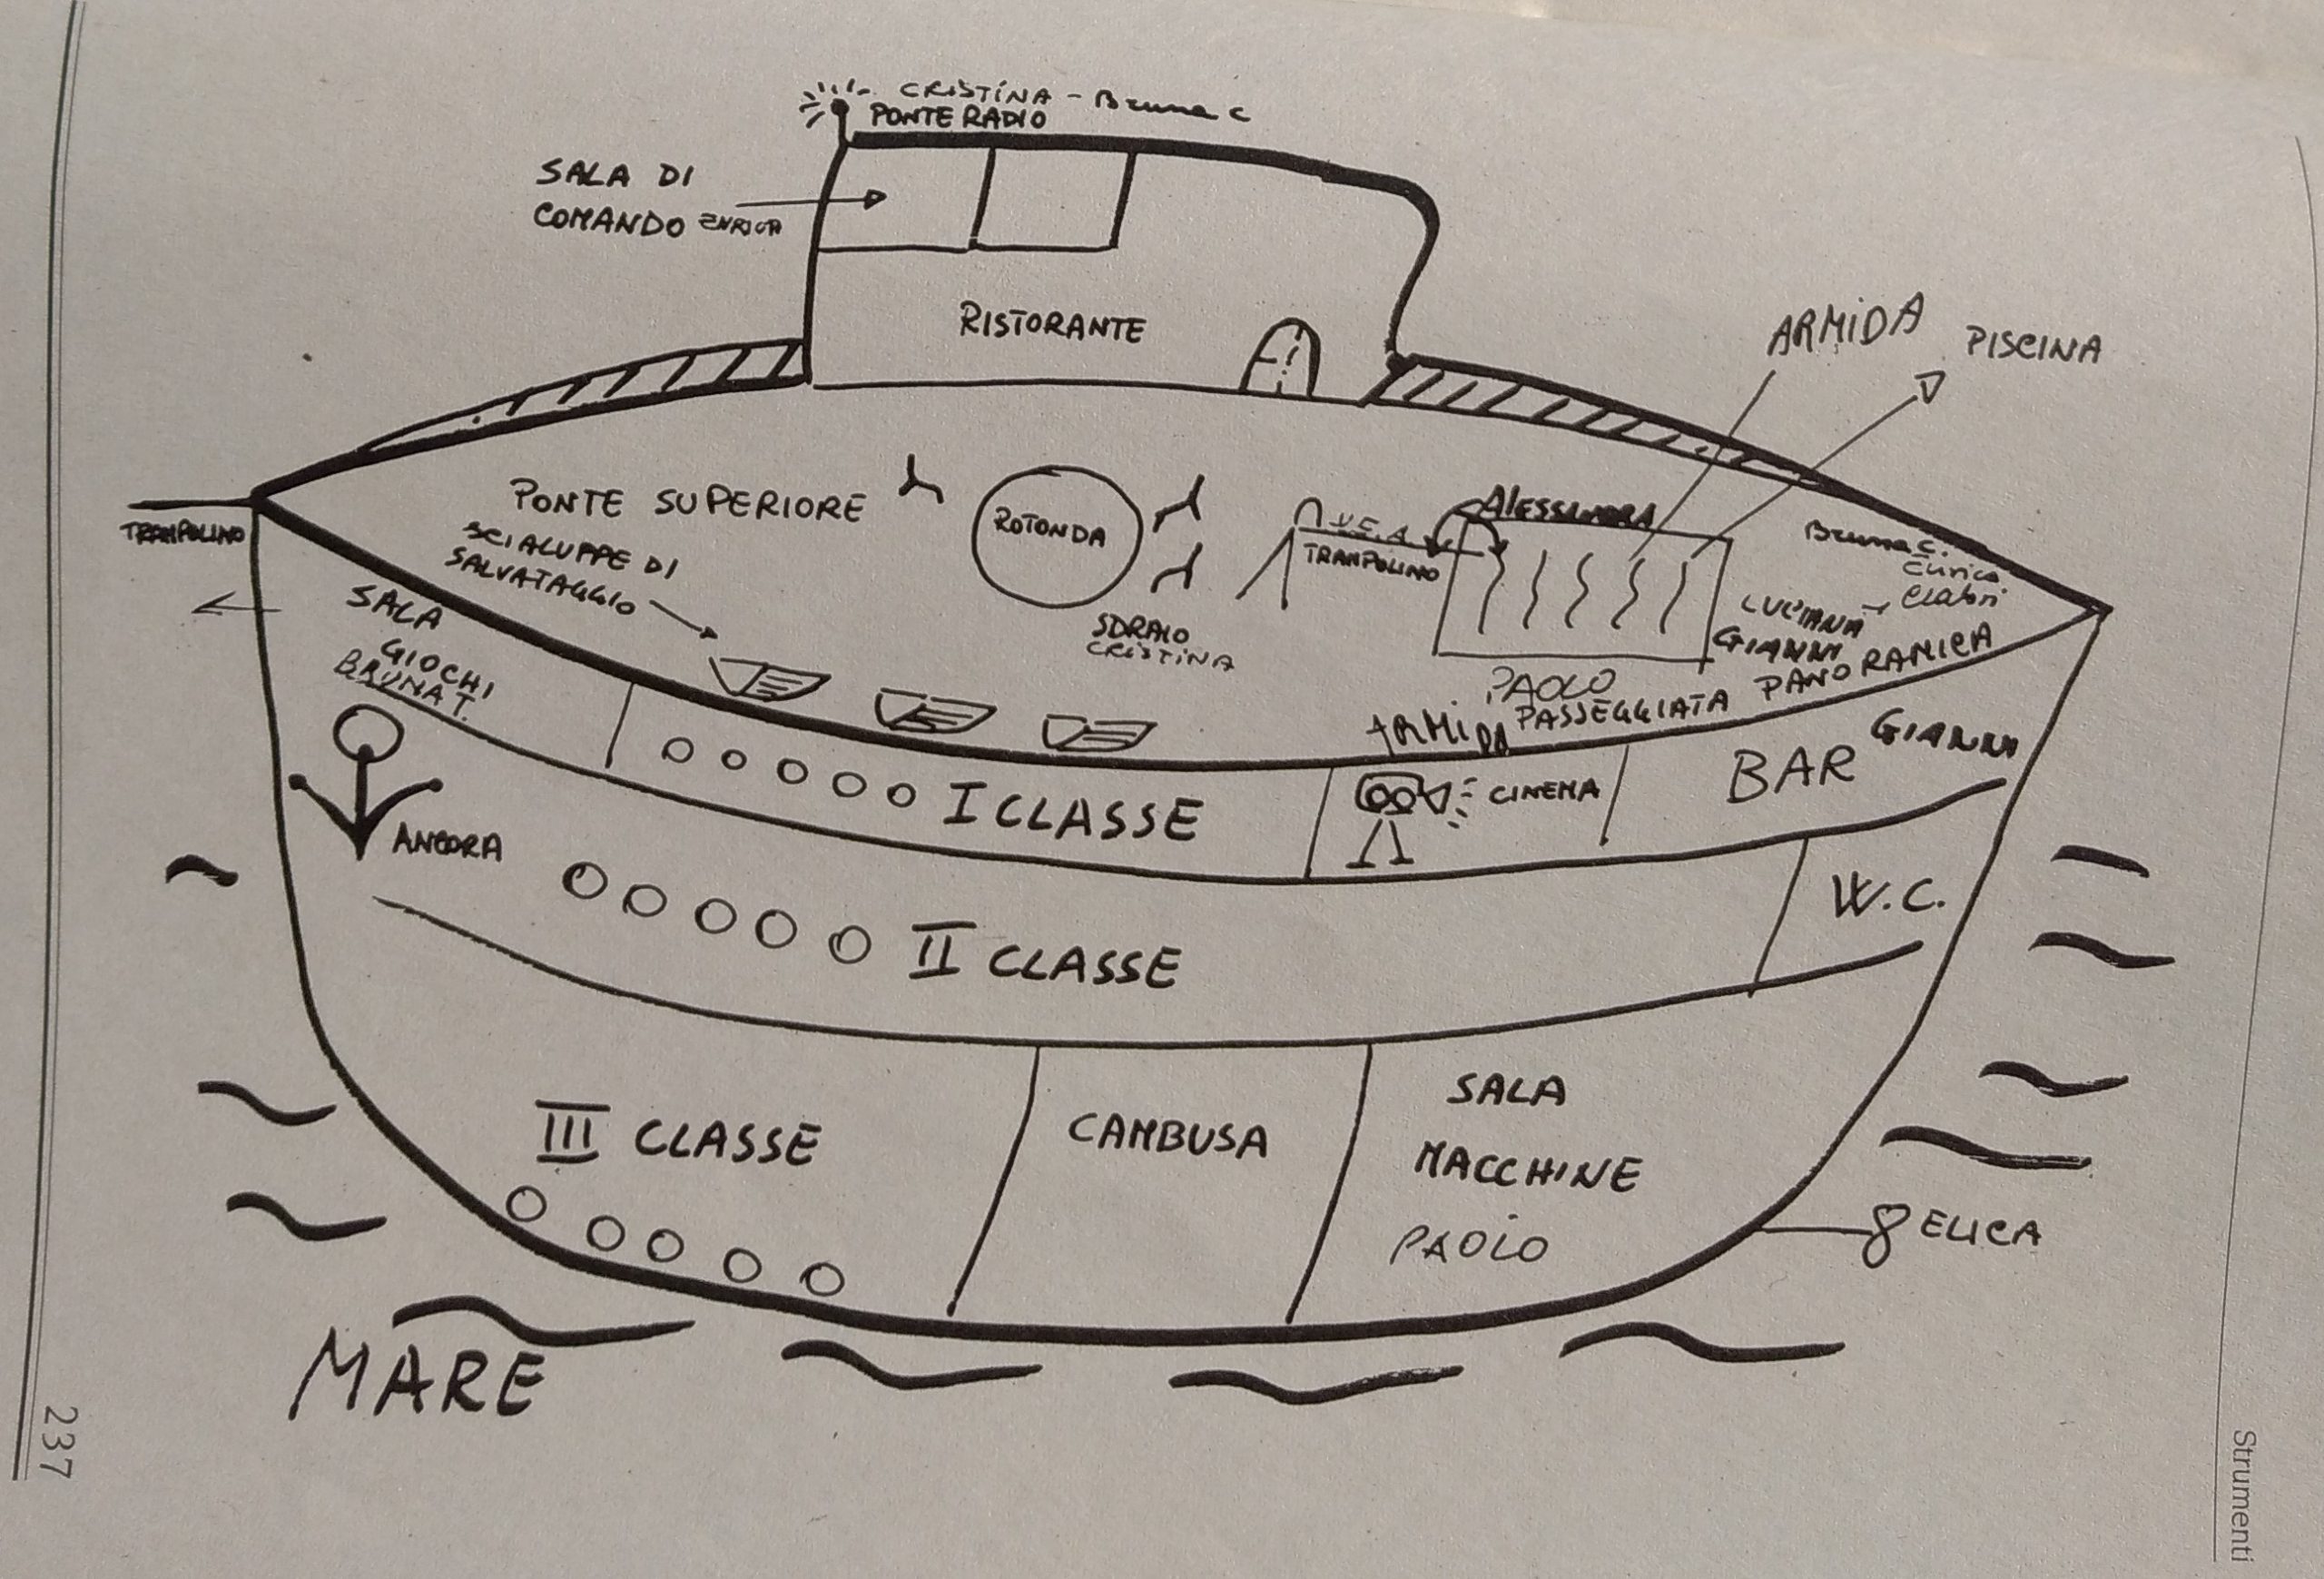 CRISTINA - Bruna C
PONTE RADIO
SALA DI
COMANDO ENRICA
RISTORANTE
ARMIDA
PISCINA
TRAMPOLINO
PONTE SUPERIORE
SCIALUPPE DI
SALVATAGGIO
ROTONDA
SDRAIO
CRISTINA
TRAMPOLINO
ALESSANDRA
Bruna C.
Enrica
LUCIANA
GIANNI
PAOLO
ARMIDA
PASSEGGIATA PANORAMICA
SALA
GIOCHI
BRUNA T.
I CLASSE
CINEMA
BAR
GIANNI
ANCORA
II CLASSE
W.C.
III CLASSE
CAMBUSA
SALA
MACCHINE
PAOLO
ELICA
MARE
237
Strumenti